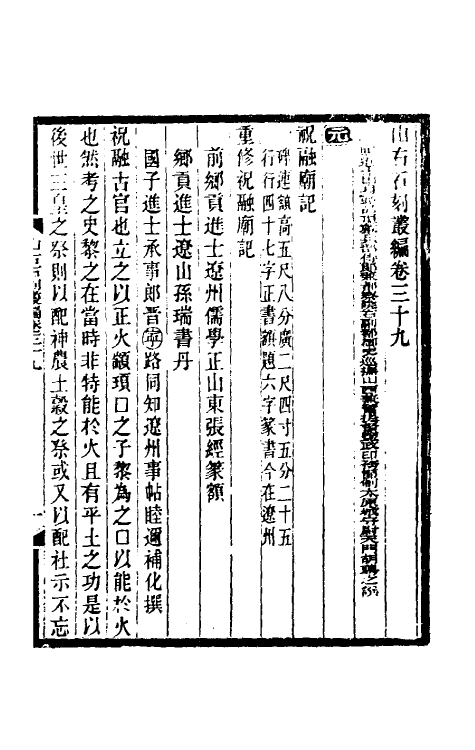 山右石刻叢編卷三十九
胡聘之
元
祝融廟記
碑連額高五尺八分廣二尺四寸五分二十五
行行四十七字正書額題六字篆書今在遼州
重修祝融廟記
前鄉貢進士遼州儒學正山東張經篆額
鄉貢進士遼山孫瑞書丹
國子進士承事郎晉寧路同知遼州事帖睦邇補化撰
祝融古官也立之以正火顓頊口之子黎為之口以能於火
也然考之史黎之在當時非特能於火且有平土之功是以
後世三皇之祭則以配神農土穀之祭或又以配社示不忘
山右石刻叢編卷三十九
一